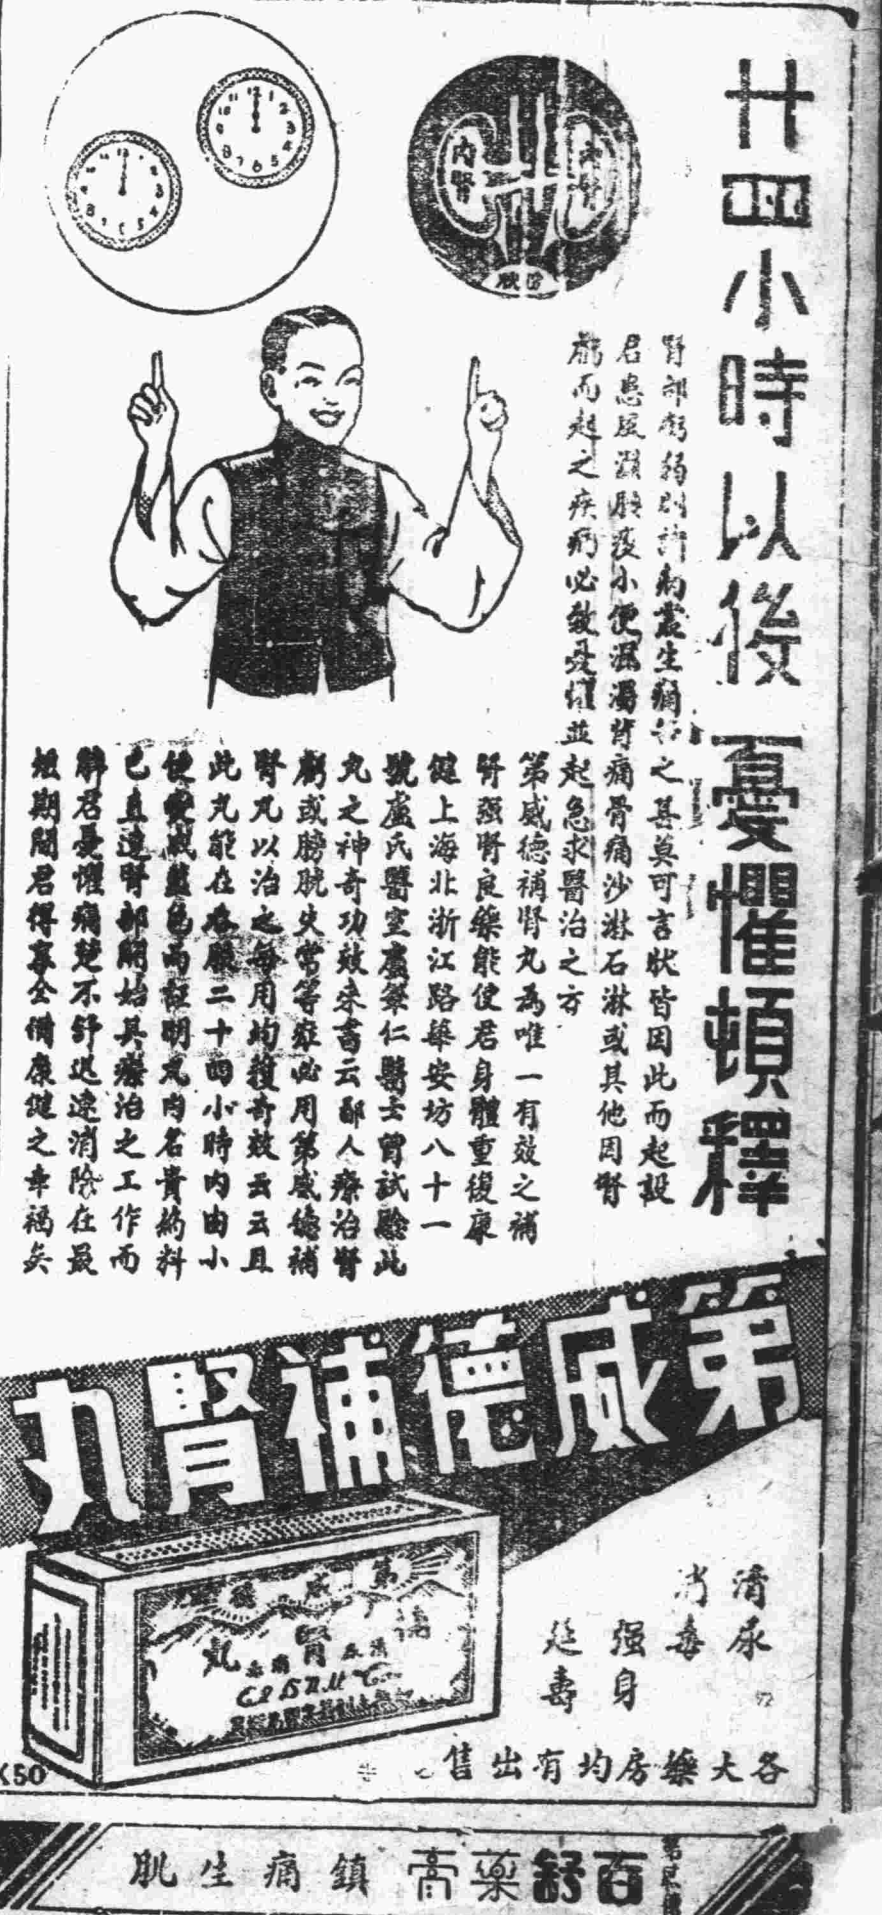 廿四小時以後憂懼頓釋
腎部虧弱則諸病叢生痛苦之甚莫可言狀皆因此而起設
君患風濕腰痠小便混濁背痛骨痛沙淋石淋或其他因腎
虧而起之疾病必致憂懼並起急求醫治之方
第威德補腎丸為唯一有效之補
腎强腎良藥能使君身體重復康
健上海北浙江路華安坊八十一
號盧氏醫室盧燊仁醫士曾試驗此
丸之神奇功效來書云鄙人療治腎
虧或膀胱失常等症必用第威德補
腎丸以治之每用均獲奇效云云且
此丸能在君服二十四小時內由小
便變成藍色而証明丸內名貴葯料
已直達腎部開始其療治之工作而
解君憂懼痛楚不舒迅速消除在最
短期間君得享全備康健之幸福矣
內腎
內腎
膀胱
第威德補腎丸
第威德
補腎丸
清尿
消毒
强身
延壽
各大藥房均有出售
百舒藥膏 鎮痛生肌